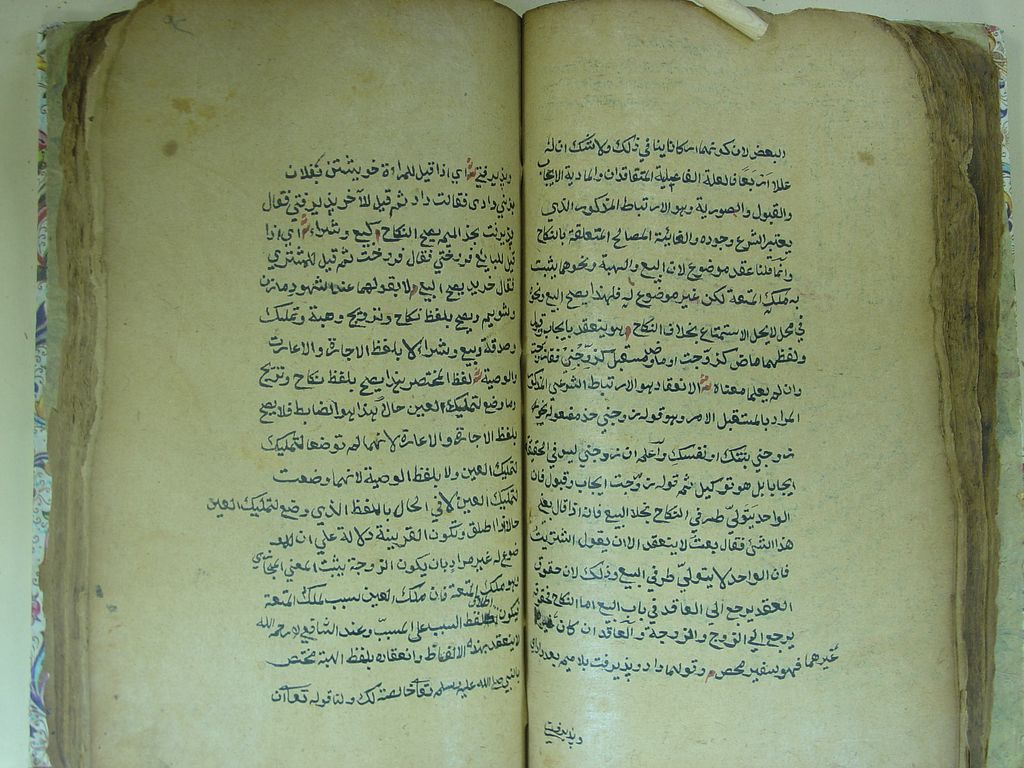 البعض لان كونهما اركانا ينافي ذلك ولا شك ان له
عللا اربعا فالعلة الفاعلية المتعاقدان والمادية الايجاب
والقبول والصورية وهو الارتباط المذكور الذي
يعتبر الشرع وجوده والغائية المصالح المتعلقة بالنكاح
وانما قلنا عقد موضوع لان البيع والهبة ونحوهما يثبت
به ملك المتعة لكن غير موضوع له فلهذا يصح البيع ونحوه
في محل لا يحل الاستمتاع بخلاف النكاح م هو ينعقد بايجاب وقبول
ولفظهما ماض كزوجت او ماض ومستقبل كزوجني فقال زوجت
وان لم يعلما معناه ش الانعقاد هو الارتباط الشرعي المذكور
المراد بالمستقبل الامر وهو قوله زوجني حذف مفعوله نحو
زوجني بنتك او نفسك واعلم ان زوجني ليس في الحقيقة
ايجابا بل هو توكيل ثم قوله زوجت ايجاب وقبول فان
الواحد يتولى طرفي النكاح بخلاف البيع فان اذا قال بعني
هذا الشئ فقال بعت لا ينعقد الا ان يقول اشتريت
فان الواحد لا يتولى طرفي البيع وذلك لان حقوق
العقد يرجع الى العاقد في باب البيع اما النكاح فحقوقه
يرجع الى الزوج والزوجة والعاقد ان كان غيرهما
غيرهما فهو سفير محض م وقولهما داد وپذيرفت بلا ميم بعد دادي
وپذيرفتي
وپذيرفتي ش اي اذا قيل للمراة خويشتن بفلان
بزني دادي فقالت داد ثم قيل للآخر پذيرفتي فقال
پذيرفت بحذف الميم يصح النكاح م كبيع وشراء ش اي اذا
قيل للبايع فروختي فقال فروخت ثم قيل للمشتري
فقال خريد يصح البيع م لا بقولهما عند الشهود ما زن
وشوييم ويصح بلفظ نكاح وتزويج وهبة وتمليك
وصدقة وبيع وشراء لا بلفظ الاجارة والاعارة
والوصية ش لفظ المختصر هذا يصح بلفظ نكاح وتزويج
وما وضع لتمليك العين حالا هذا هو الضابط فلا يصح
بلفظ الاجارة والاعارة لانهما لم توضعا لتمليك
لتمليك العين ولا بلفظ الوصية لانها وضعت
لتمليك العين لا في الحال بالمفظ الذي وضع لتمليك العين
حالا اذا اطلق وتكون القرينة دلالة على ان المو
ضوع له غير مراد بان يكون الزوجة يثبت المعنى المجازي
وهو ملك المتعة فان ملك العين سبب لملك المتعة
فيكون اطلاق لفظ السبب على المسبب وعند الشافعي رحمه الله
لا ينعقد بهذه الالفاظ وانعقاده بلفظ الهبة مختص
بالنبي صلى الله عليه وسلم تعالى خالصة لك ولنا قوله تعالى ان